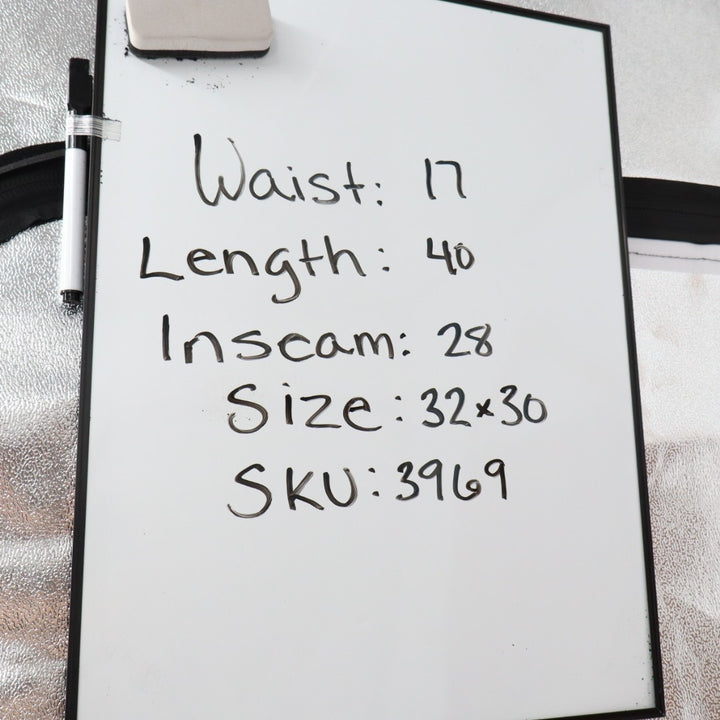 Waist: 17
Length: 40
Inseam: 28
Size: 32x30
SKU: 3969